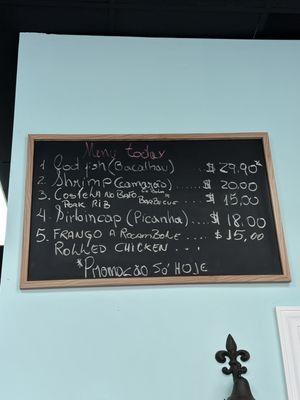 Menu today
1 Codfish (Bacalhau) ..$ 29.90*
2 Shrimp (camarão) .. $ 20.00
3 Costela no Bafo Barbecue * $ 15,00
Pork Rib
4 Sirloincap (Picanha) .... $ 18.00
5. FRANGO A Rocambole .... $ 15,00
ROLLED CHICKEN . . .
*Promoção Só HOJE